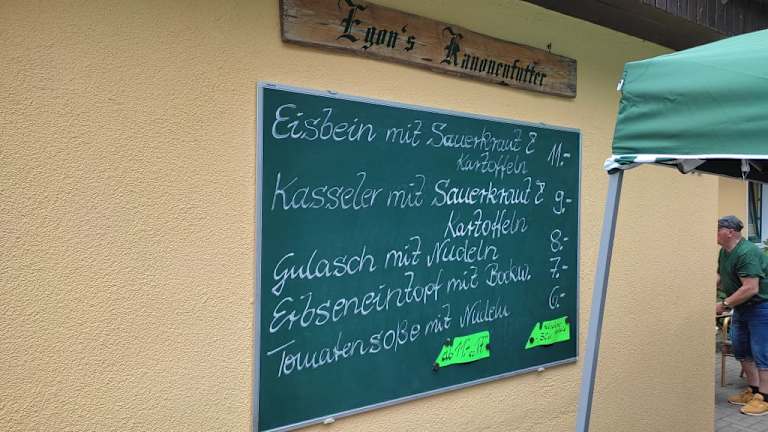 Egon's Kanonenfutter
Eisbein mit Sauerkraut & 11.-
Kartoffeln
Kasseler mit Sauerkraut & 9.-
Kartoffeln
Gulasch mit Nudeln 8.-
Erbseneintopf mit Bockw. 7.-
Tomatensoße mit Nudeln 6.-